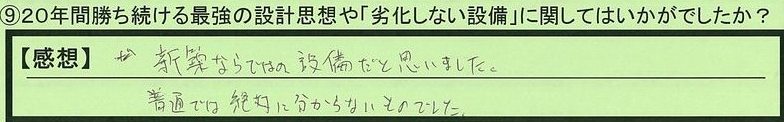 ⑨20年間勝ち続ける最強の設計思想や「劣化しない設備」に関してはいかがでしたか？
【感想】 新築ならではの設備だと思いました。
普通では絶対に分からないものでした。